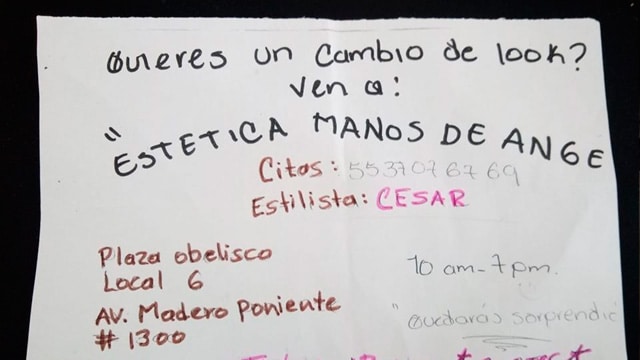 Quieres un cambio de look?
ven a:
"ESTETICA MANOS DE ANGE
Citas: 5537076769
Estilista: CESAR
Plaza obelisco
Local 6
AV. Madero Poniente
# 1300
10 am-7pm.
"Quedarás sorprendi